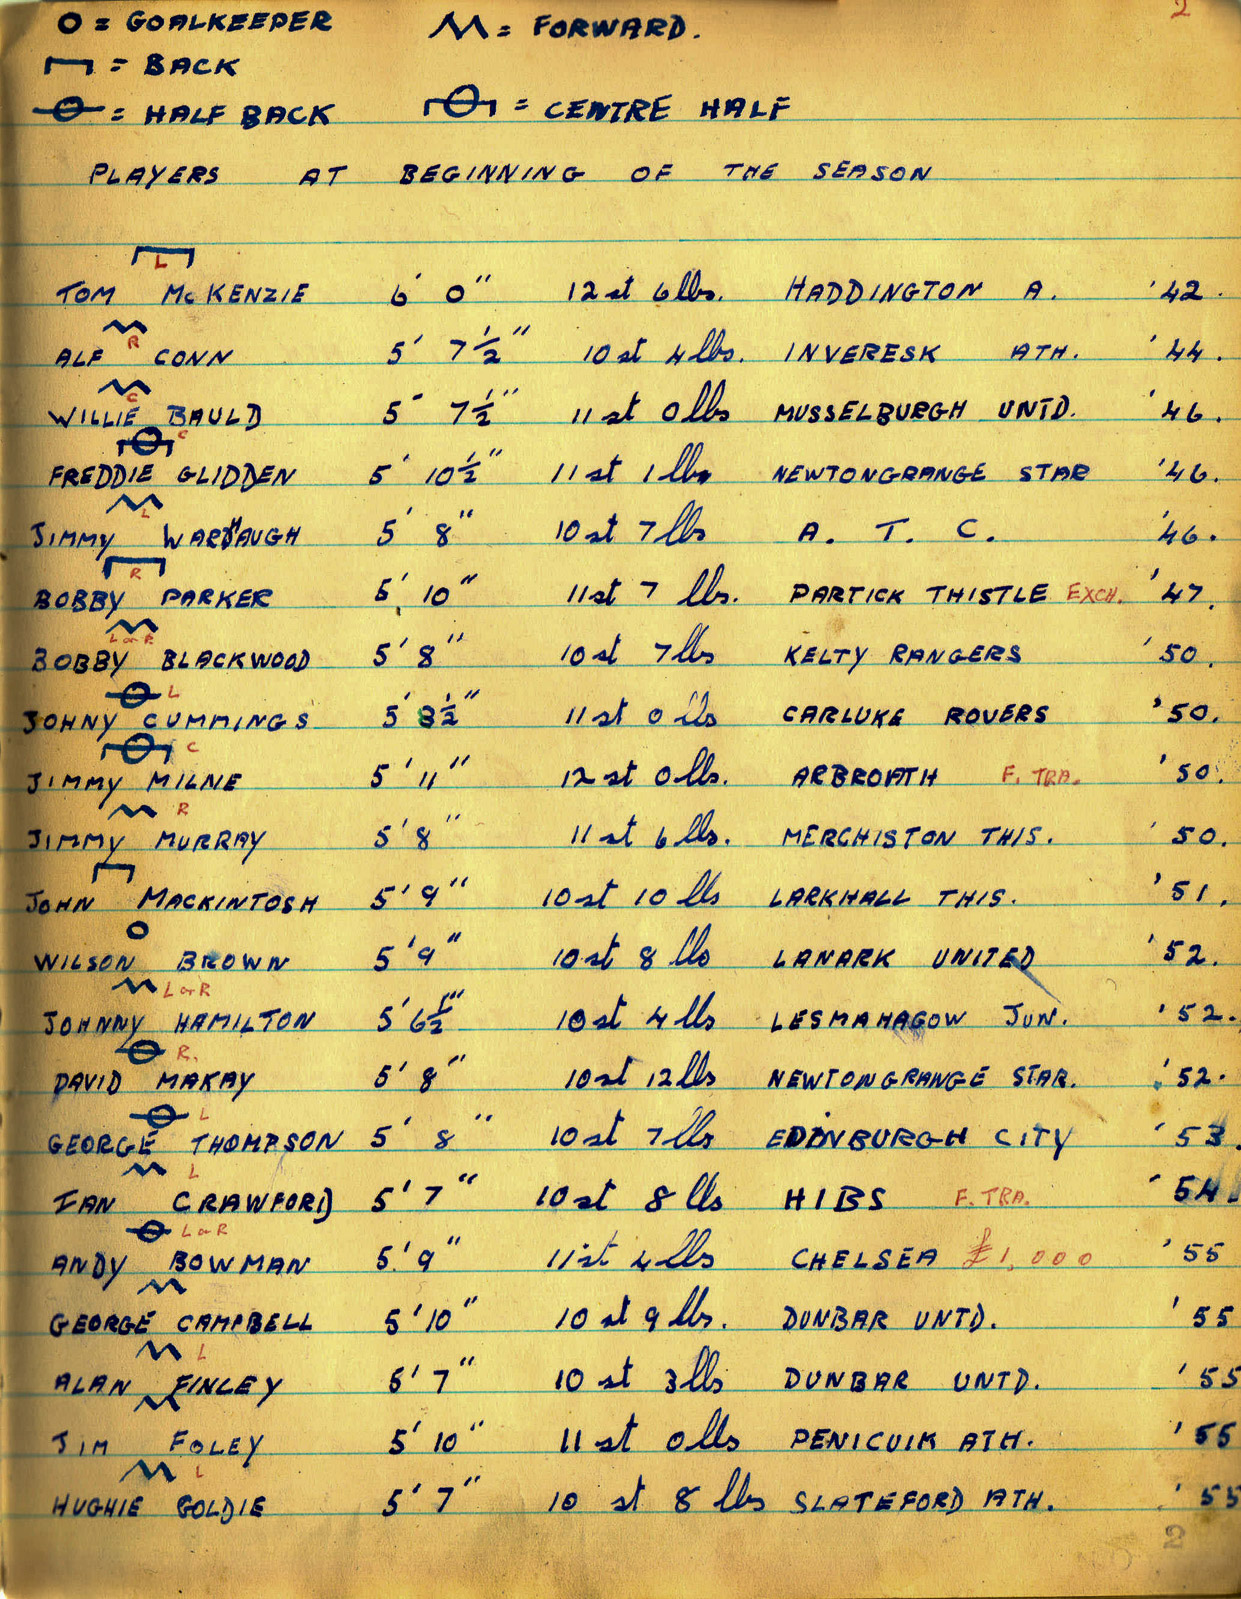 2
O = GOALKEEPER M = FORWARD.
= BACK
= HALF BACK = CENTRE HALF
PLAYERS AT BEGINNING OF THE SEASON
L
TOM McKENZIE 6' 0" 12 st 6 lbs. HADDINGTON A. '42.
R
ALF CONN 5' 7½" 10 st 4 lbs. INVERESK ATH. '44.
C
WILLIE BAULD 5' 7½" 11 st 0 lbs MUSSELBURGH UNTD. '46.
C
FREDDIE GLIDDEN 5' 10½" 11 st 1 lbs NEWTONGRANGE STAR '46.
L
JIMMY WARDHAUGH 5' 8" 10 st 7 lbs A. T. C. '46.
R
BOBBY PARKER 5' 10" 11 st 7 lbs. PARTICK THISTLE EXCH. '47.
L or R
BOBBY BLACKWOOD 5' 8" 10 st 7 lbs KELTY RANGERS '50.
L
JOHNY CUMMINGS 5' 8½" 11 st 0 lbs CARLUKE ROVERS '50.
C
JIMMY MILNE 5' 11" 12 st 0 lbs. ARBROATH F. TRA. '50.
R
JIMMY MURRAY 5' 8" 11 st 6 lbs. MERCHISTON THIS. '50.
JOHN MACKINTOSH 5' 9" 10 st 10 lbs LARKHALL THIS. '51.
O
WILSON BROWN 5' 9" 10 st 8 lbs LANARK UNITED '52.
L or R
JOHNNY HAMILTON 5' 6½" 10 st 4 lbs LESMAHAGOW JUN. '52.
R.
DAVID MAKAY 5' 8" 10 st 12 lbs NEWTONGRANGE STAR. '52.
L
GEORGE THOMPSON 5' 8" 10 st 7 lbs EDINBURGH CITY '53.
L
IAN CRAWFORD 5' 7" 10 st 8 lbs HIBS F. TRA. '54.
L or R
ANDY BOWMAN 5' 9" 11 st 4 lbs CHELSEA £1,000 '55
GEORGE CAMPBELL 5' 10" 10 st 9 lbs. DUNBAR UNTD. '55
L
ALAN FINLEY 5' 7" 10 st 3 lbs DUNBAR UNTD. '55
JIM FOLEY 5' 10" 11 st 0 lbs PENICUIK ATH. '55
L
HUGHIE GOLDIE 5' 7" 10 st 8 lbs SLATEFORD ATH. '55
2